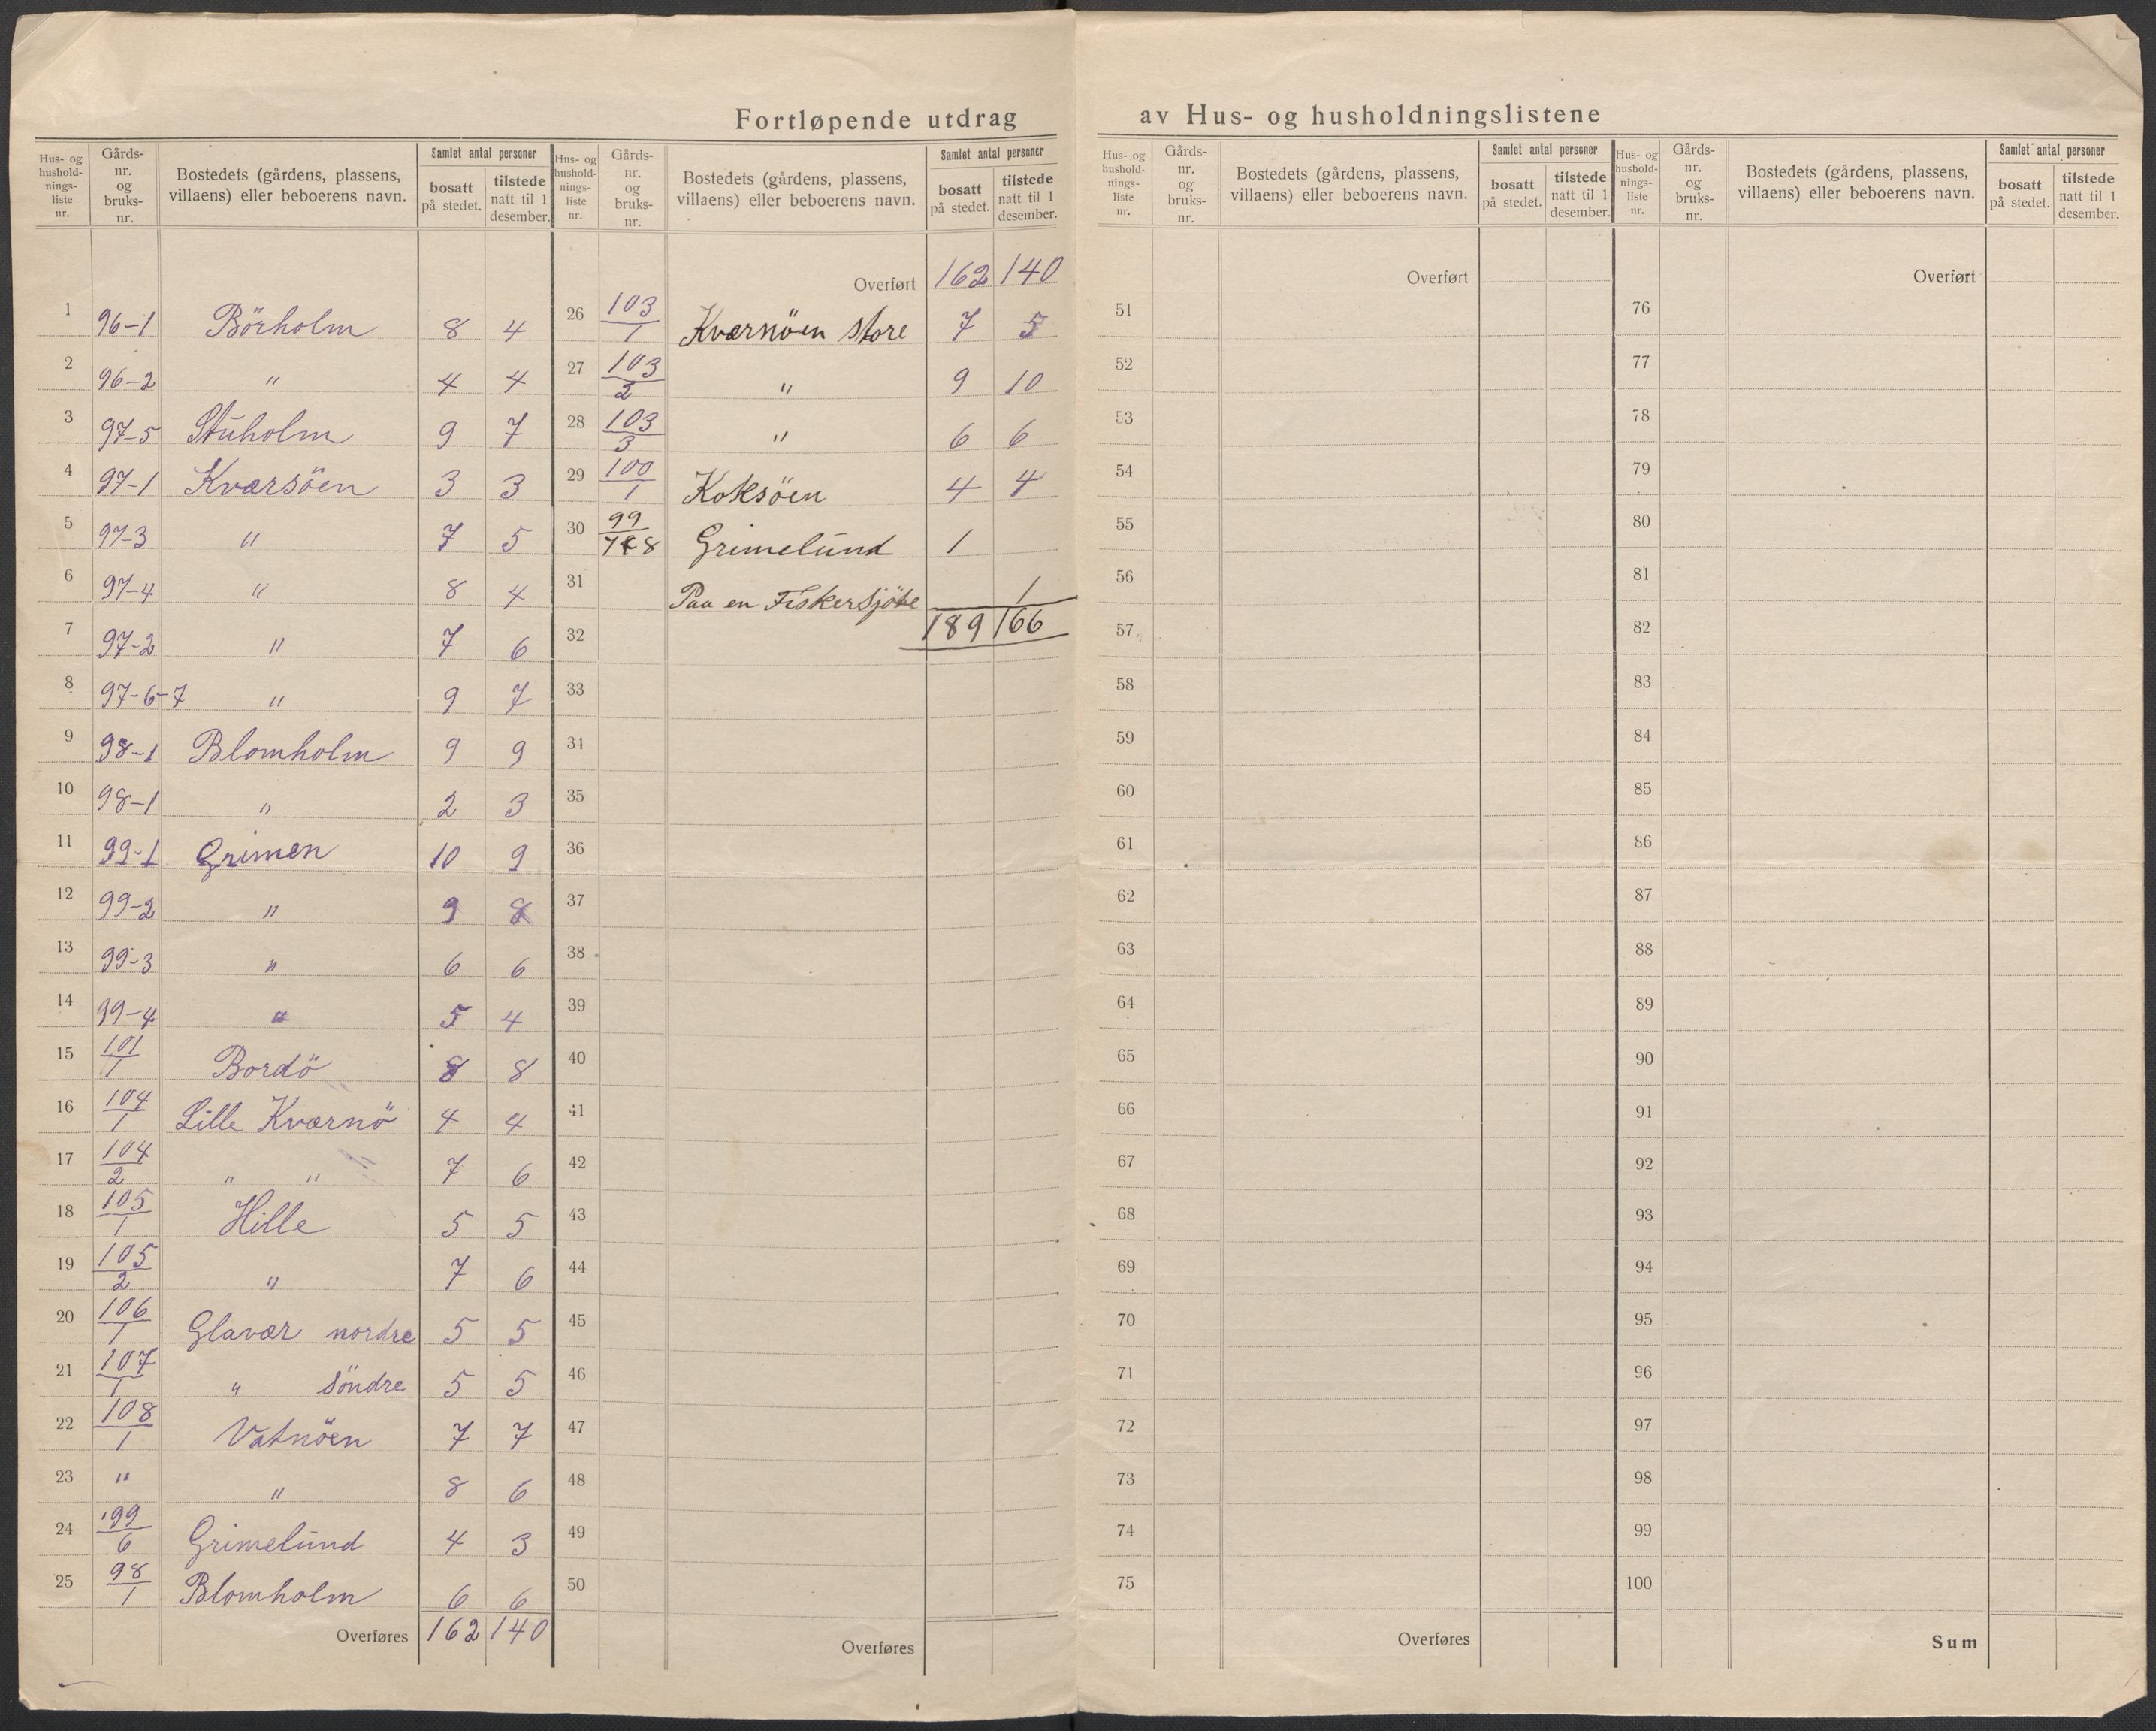 Fortløpende utdrag av Hus- og husholdningslistene
Hus- og husholdnings-liste nr. | Gårds-nr. og bruks-nr. | Bostedets (gårdens, plassens, villaens) eller beboerens navn. | Samlet antal personer | bosatt på stedet. | tilstede natt til 1 desember.
1 96-1 Börholm 8 4
2 96-2 " 4 4
3 97-5 Stuholm 9 7
4 97-1 Kværsöen 3 3
5 97-3 " 7 5
6 97-4 " 8 4
7 97-2 " 7 6
8 97-6-7 " 9 7
9 98-1 Blomholm 9 9
10 98-1 " 2 3
11 99-1 Grimen 10 9
12 99-2 " 9 8
13 99-3 " 6 6
14 99-4 " 5 4
15 101/1 Bordö 8 8
16 104/1 Lille Kværnö 4 4
17 104/2 " " 7 6
18 105/1 Hille 5 5
19 105/2 " 7 6
20 106/1 Glavær nordre 5 5
21 107/1 " söndre 5 5
22 108/1 Vatnöen 7 7
23 " " 8 6
24 99/6 Grimelund 4 3
25 98/1 Blomholm 6 6
Overføres 162 140
Hus- og husholdnings-liste nr. | Gårds-nr. og bruks-nr. | Bostedets (gårdens, plassens, villaens) eller beboerens navn. | Samlet antal personer | bosatt på stedet. | tilstede natt til 1 desember.
Overført 162 140
26 103/1 Kværnöen store 7 5
27 103/2 " 9 10
28 103/3 " 6 6
29 100/1 Koksöen 4 4
30 99/ Grimelund 1
31 Paa en 1
32 189 166
33
34
35
36
37
38
39
40
41
42
43
44
45
46
47
48
49
50
Overføres
Hus- og husholdnings-liste nr. | Gårds-nr. og bruks-nr. | Bostedets (gårdens, plassens, villaens) eller beboerens navn. | Samlet antal personer | bosatt på stedet. | tilstede natt til 1 desember.
Overført
51
52
53
54
55
56
57
58
59
60
61
62
63
64
65
66
67
68
69
70
71
72
73
74
75
Overføres
Hus- og husholdnings-liste nr. | Gårds-nr. og bruks-nr. | Bostedets (gårdens, plassens, villaens) eller beboerens navn. | Samlet antal personer | bosatt på stedet. | tilstede natt til 1 desember.
Overført
76
77
78
79
80
81
82
83
84
85
86
87
88
89
90
91
92
93
94
95
96
97
98
99
100
Sum